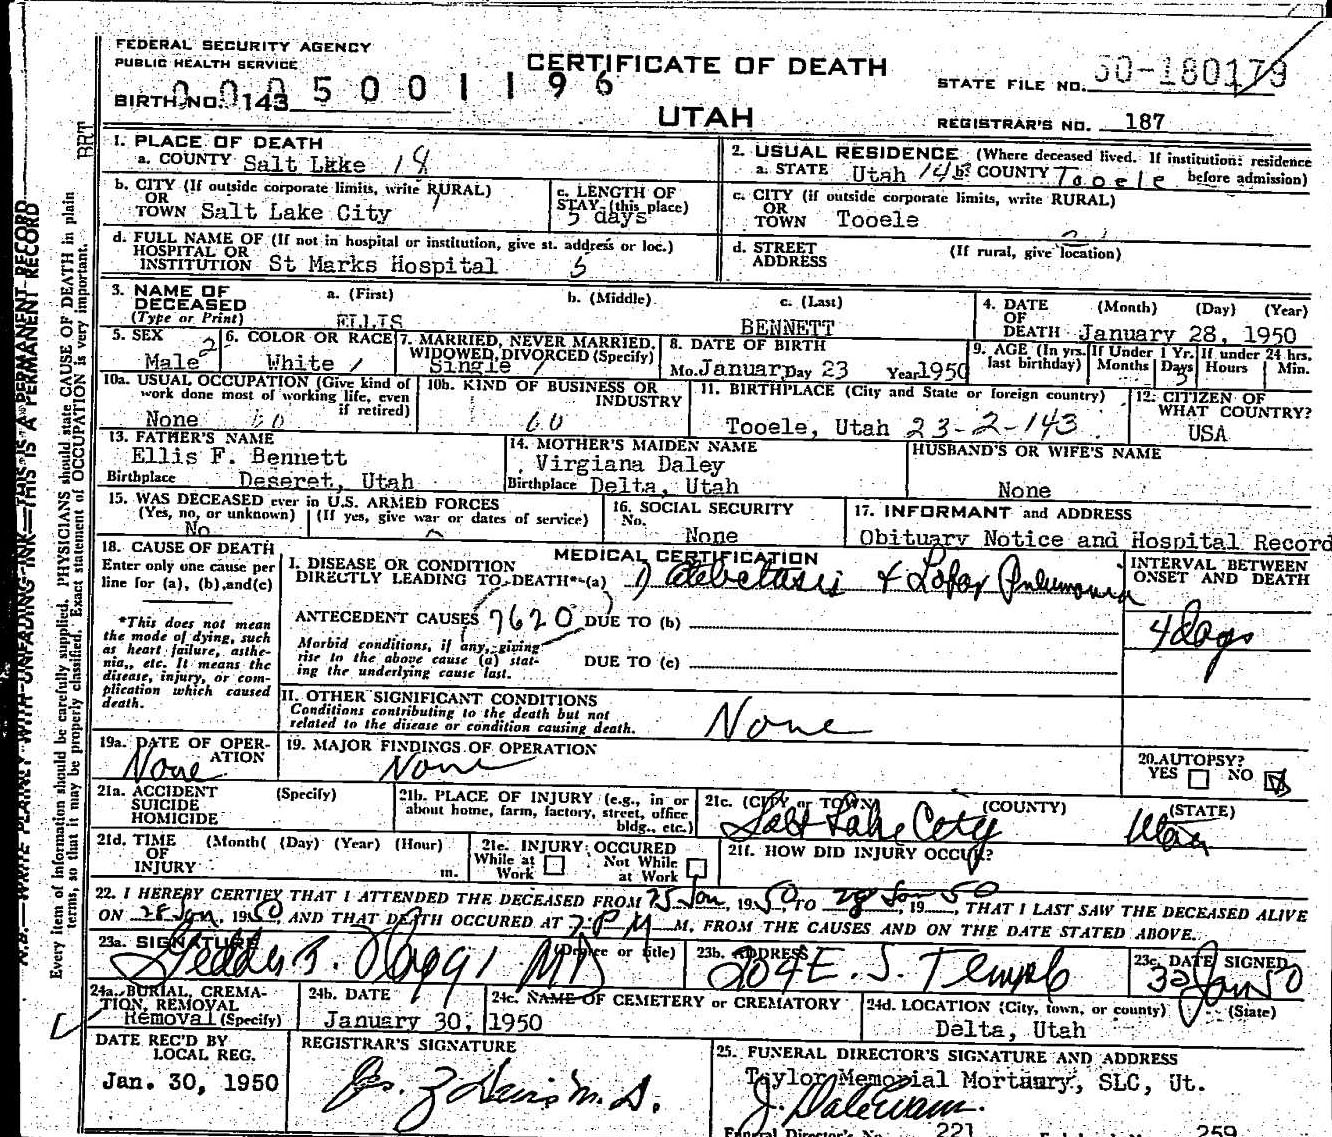 FEDERAL SECURITY AGENCY
PUBLIC HEALTH SERVICE
CERTIFICATE OF DEATH
UTAH
BIRTH NO. 143
0005001196
STATE FILE NO. 50-180179
REGISTRAR'S NO. 187
BRT
1. PLACE OF DEATH
a. COUNTY Salt Lake 18
b. CITY (If outside corporate limits, write RURAL)
OR
TOWN Salt Lake City
c. LENGTH OF
STAY (this place)
5 days
d. FULL NAME OF (If not in hospital or institution, give st. address or loc.)
HOSPITAL OR
INSTITUTION St Marks Hospital 5
2. USUAL RESIDENCE (Where deceased lived. If institution: residence
before admission)
a. STATE Utah 143 b. COUNTY Tooele
c. CITY (if outside corporate limits, write RURAL)
OR
TOWN Tooele
d. STREET
ADDRESS
(If rural, give location)
3. NAME OF
DECEASED
(Type or Print)
a. (First)
ELLIS
b. (Middle)
c. (Last)
BENNETT
4. DATE
OF
DEATH
(Month) (Day) (Year)
January 28, 1950
5. SEX
Male 2
6. COLOR OR RACE
White /
7. MARRIED, NEVER MARRIED,
WIDOWED, DIVORCED (Specify)
Single /
8. DATE OF BIRTH
Mo. January Day 23 Year 1950
9. AGE (In yrs.
last birthday)
If Under 1 Yr.
Months Days
5
If under 24 hrs.
Hours Min.
10a. USUAL OCCUPATION (Give kind of
work done most of working life, even
if retired)
None 60
10b. KIND OF BUSINESS OR
INDUSTRY
60
11. BIRTHPLACE (City and State or foreign country)
Tooele, Utah 23-2-143
12. CITIZEN OF
WHAT COUNTRY?
USA
13. FATHER'S NAME
Ellis F. Bennett
Birthplace Deseret, Utah
14. MOTHER'S MAIDEN NAME
Virgiana Daley
Birthplace Delta, Utah
HUSBAND'S OR WIFE'S NAME
None
15. WAS DECEASED ever in U.S. ARMED FORCES
(Yes, no, or unknown) (If yes, give war or dates of service)
No
16. SOCIAL SECURITY
No.
None
17. INFORMANT and ADDRESS
Obituary Notice and Hospital Record
18. CAUSE OF DEATH
Enter only one cause per
line for (a), (b), and (c)
*This does not mean
the mode of dying, such
as heart failure, asthe-
nia, etc. It means the
disease, injury, or com-
plication which caused
death.
MEDICAL CERTIFICATION
I. DISEASE OR CONDITION
DIRECTLY LEADING TO DEATH*(a) Atelectasis & Lobar Pneumonia
ANTECEDENT CAUSES 7620 DUE TO (b)
Morbid conditions, if any, giving
rise to the above cause (a) stat-
ing the underlying cause last.
DUE TO (c)
INTERVAL BETWEEN
ONSET AND DEATH
4 days
II. OTHER SIGNIFICANT CONDITIONS
Conditions contributing to the death but not
related to the disease or condition causing death.
None
19a. DATE OF OPER-
ATION
None
19. MAJOR FINDINGS OF OPERATION
None
20. AUTOPSY?
YES NO
21a. ACCIDENT
SUICIDE
HOMICIDE
(Specify)
21b. PLACE OF INJURY (e.g., in or
about home, farm, factory, street, office
bldg., etc.)
21c. (CITY or TOWN) (COUNTY) (STATE)
Salt Lake City Utah
21d. TIME (Month( (Day) (Year) (Hour)
OF
INJURY m.
21e. INJURY OCCURED
While at Work
Not While at Work
21f. HOW DID INJURY OCCUR?
22. I HEREBY CERTIFY THAT I ATTENDED THE DECEASED FROM 25 Jan, 1950, TO 28 Jan 50, 19__, THAT I LAST SAW THE DECEASED ALIVE
ON 28 Jan, 1950, AND THAT DEATH OCCURED AT 7 P M M, FROM THE CAUSES AND ON THE DATE STATED ABOVE.
23a. SIGNATURE (Degree or title)
MD
23b. ADDRESS
204 E. S. Temple
23c. DATE SIGNED
Jan 50
24a. BURIAL, CREMA-
TION, REMOVAL
Removal (Specify)
24b. DATE
January 30, 1950
24c. NAME OF CEMETERY or CREMATORY
24d. LOCATION (City, town, or county) (State)
Delta, Utah
DATE REC'D BY
LOCAL REG.
Jan. 30, 1950
REGISTRAR'S SIGNATURE
M.D.
25. FUNERAL DIRECTOR'S SIGNATURE AND ADDRESS
Taylor Memorial Mortuary, SLC, Ut.
Funeral Director's No. 221
259
N.B.—WRITE PLAINLY WITH UNFADING INK—THIS IS A PERMANENT RECORD
Every item of information should be carefully supplied. PHYSICIANS should state CAUSE OF DEATH in plain
terms, so that it may be properly classified. Exact statement of OCCUPATION is very important.